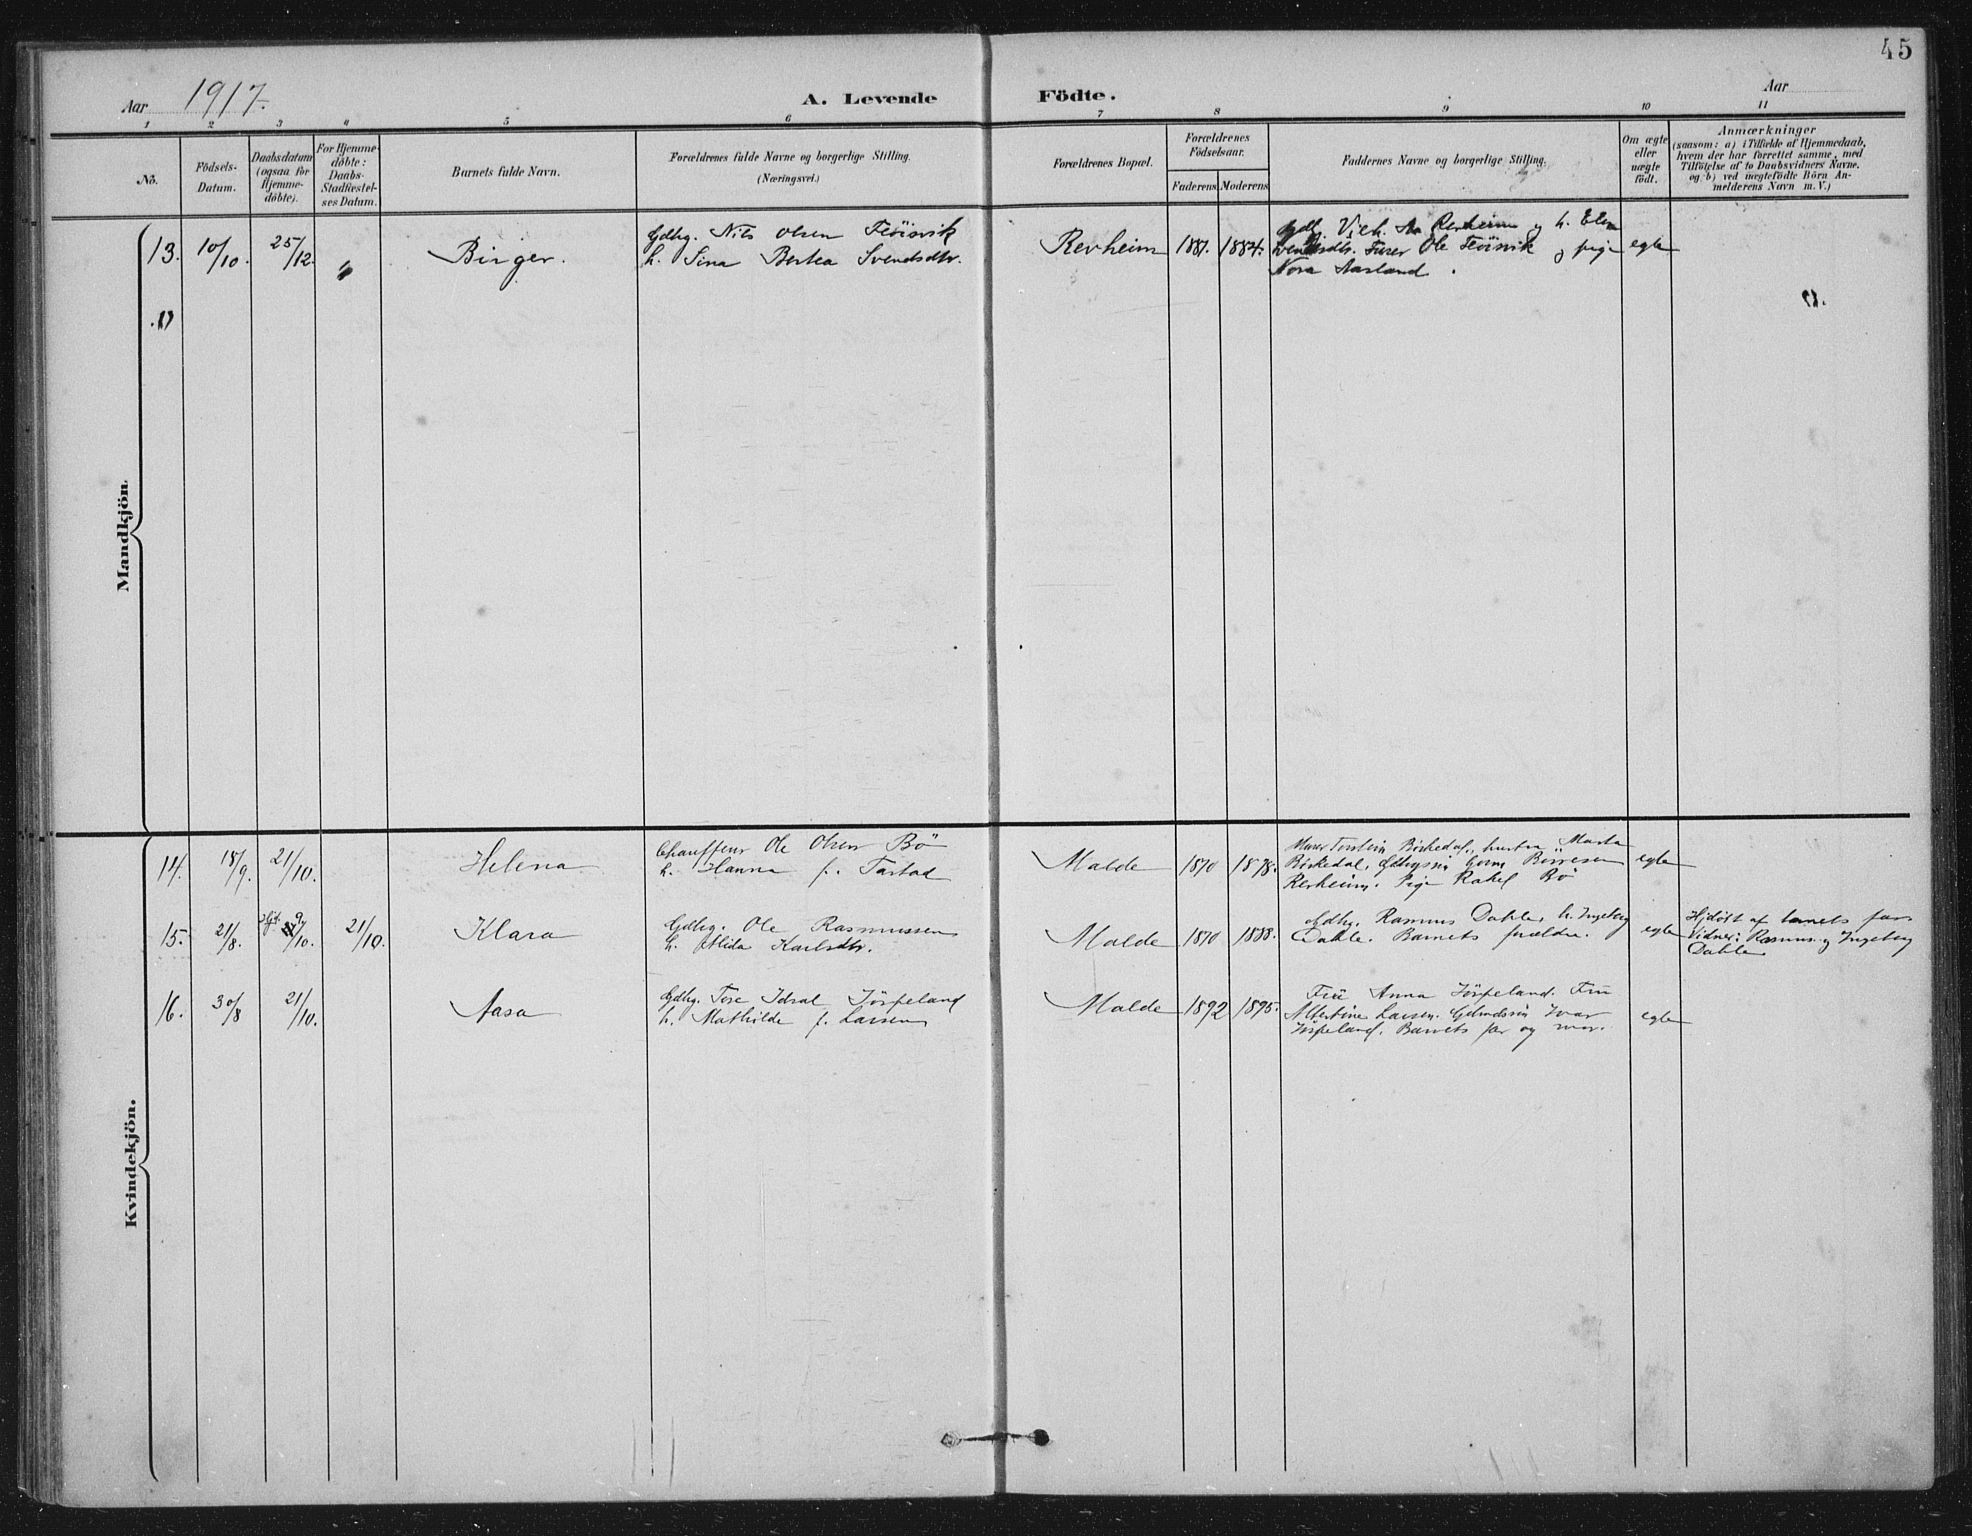 45
Aar 1917.
A. Levende Födte.
Aar
1 2 3 4 5 6 7 8 9 10 11
No.
Födsels-Datum.
Daabsdatum (ogsaa for Hjemme-döbte).
For Hjemme-döbte: Daabs-Stadfæstel-ses Datum.
Barnets fulde Navn.
Forældrenes fulde Navne og borgerlige Stilling.
(Næringsvei.)
Forældrenes Bopæl.
Forældrenes Födselsaar.
Faderens
Moderens
Faddernes Navne og borgerlige Stilling.
Om ægte eller uægte födt.
Anmærkninger
(saasom: a) i Tilfælde af Hjemmedaab,
hvem der har forrettet samme, med
Tilföielse af to Daabsvidners Navne.
og b) ved uægtefödte Börn An-
melderens Navn m. V.)
Mandkjön.
13. 10/10. 25/12. Birger.
Gdbg. Nils Olsen Feöisvik
h. Sina Bertea Svendsdtr.
Revheim 1881. 1884.
Revheim og h. Elen
Svendsdtr. Ole Feöisvik og pige
Nora Aarland.
egte
Kvindekjön.
14. 18/9. 21/10. Helena
Chauffeur Ole Olsen Bö
h. Hanna f. Tastad
Malde 1870 1878.
Murer Torstein Birkedal, hustru Marta
Birkedal, Börresen
Revheim. Pige Rakel Bö
egte
15. 21/8. 9/10. 21/10. Klara
Gdbg. Ole Rasmussen
h. Alida Karlsdtr.
Malde 1870 1888.
Gdbg. Rasmus Dahle, h. Ingeborg
Dahle. Barnets forældre.
egte
Hjdöbt af barnets far
Vidner: Rasmus og Ingeborg
Dahle
16. 30/8 21/10. Aasa
Gdbg. Tore Idsal Jörpeland
h. Mathilde f. Larsen
Malde 1892 1895.
Fru Anna Jörpeland. Fru
Albertine Larsen. Ivar
Jörpeland. Barnets far og mor.
egte